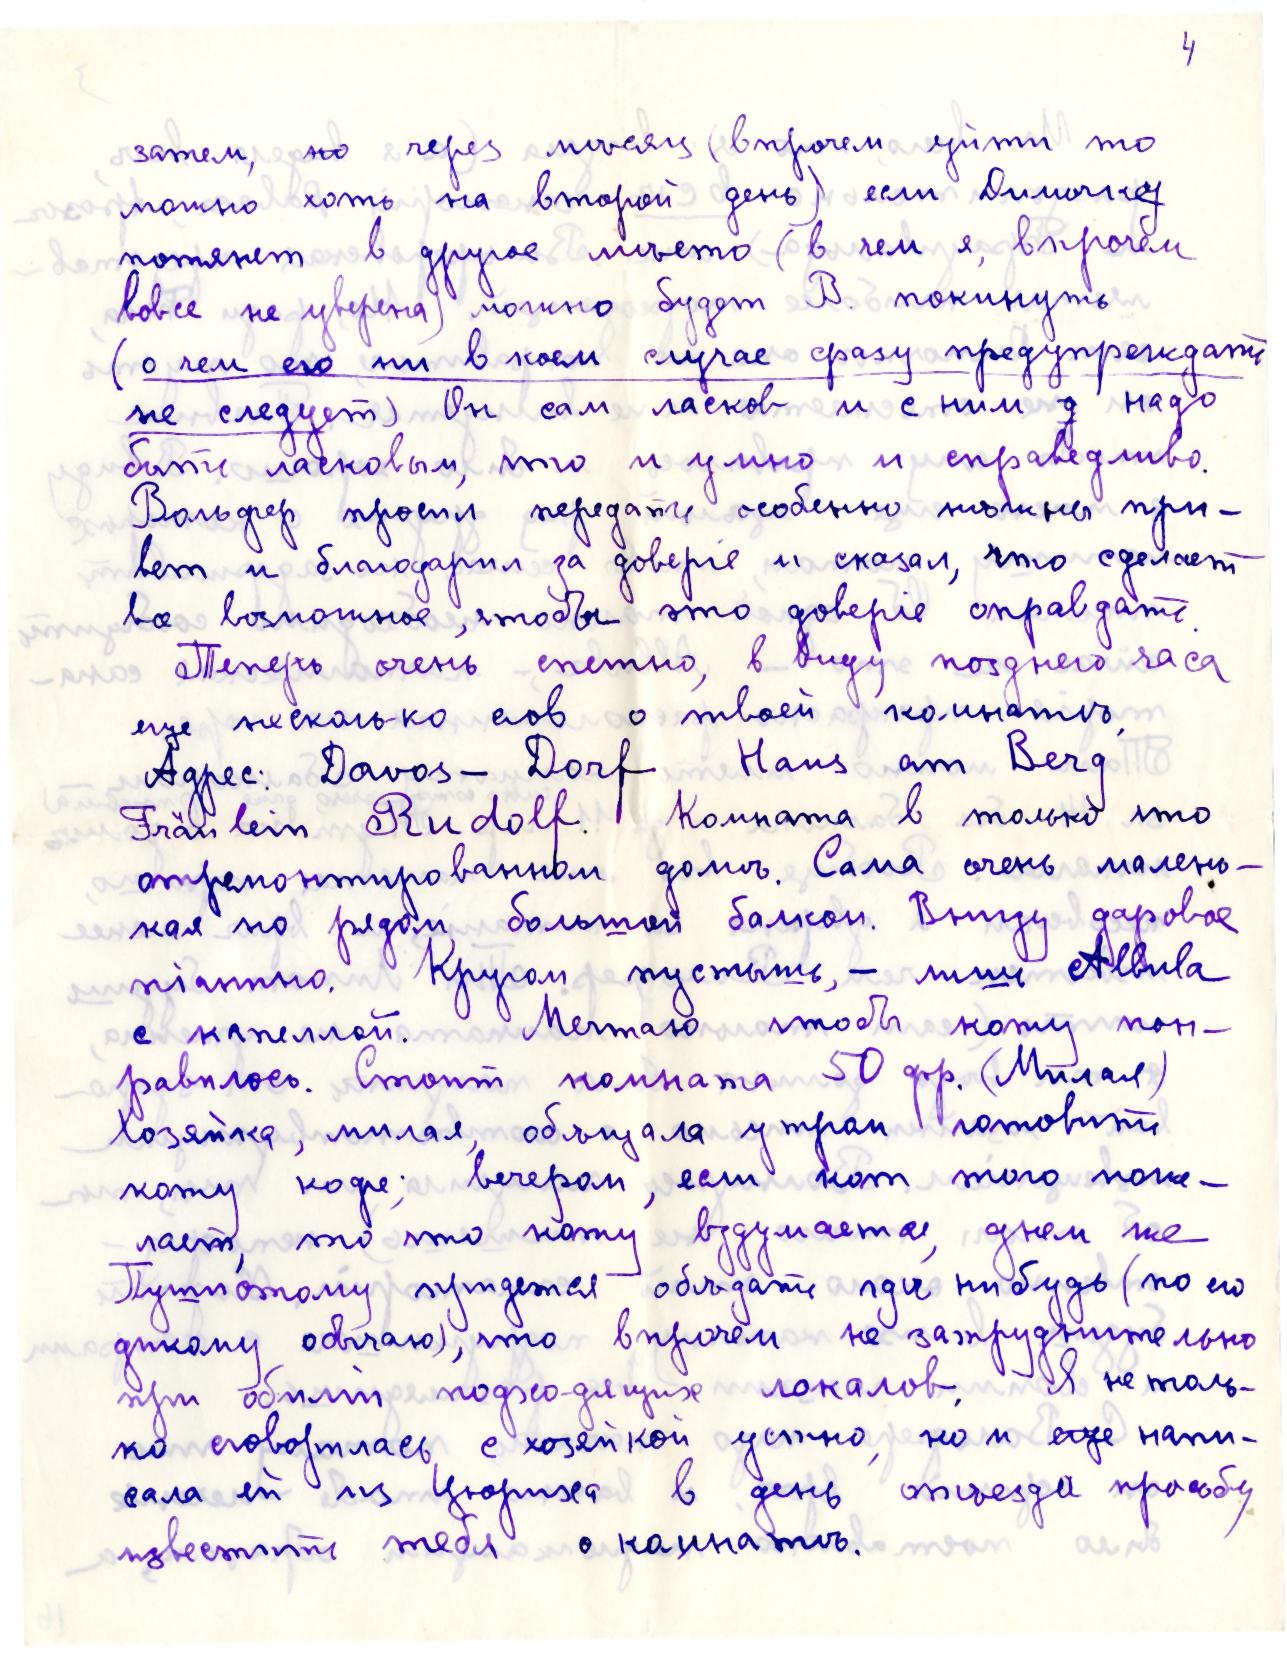 4
затем, но через мѣсяц (впрочем уйти то
можно хоть на второй день) если Димочку
потянет в другое мѣсто (в чем я, впрочем
вовсе не уверена) можно будет В. покинуть
(о чем его ни в коем случае сразу предупреждать
не следует) Он сам ласков и с ним надо
быть ласковым, это и умно и справедливо.
Вольфер просил передать особенно нѣжны при-
вет и благодарил за довѣрiе и сказал, что сделает
все возможное, чтобы это доверiе оправдать.
Теперь очень спешно, в виду позднего часа
еще несколько слов о твоей комнатѣ,
Адрес: Davos – Dorf Haus am Berg
Fräulein Rudolf. Комната в только что
отремонтированном домѣ. Сама очень малень-
кая но рядом большой балкон. Внизу даровое
пiанино. Кругом пустышь, – лишь Albula
с капеллой. Мечтаю чтобы коту пон-
равилось. Стоит комната 50 фр. (Милая)
Хозяйка, милая, обѣщала утром готовить
коту кофе; вечером, если кот того поже-
лает, то что коту вздумается, днем же
Пушистому придется обѣдать гдѣ нибудь (по его
дикому обычаю), что впрочем не затруднительно
при обилiи подхо-дящих локалов. Я не толь-
ко сговорилась с хозяйкой устно, но и еще напи-
сала ей из Цюриха в день отъезда просьбу
известить тебя о комнатѣ.